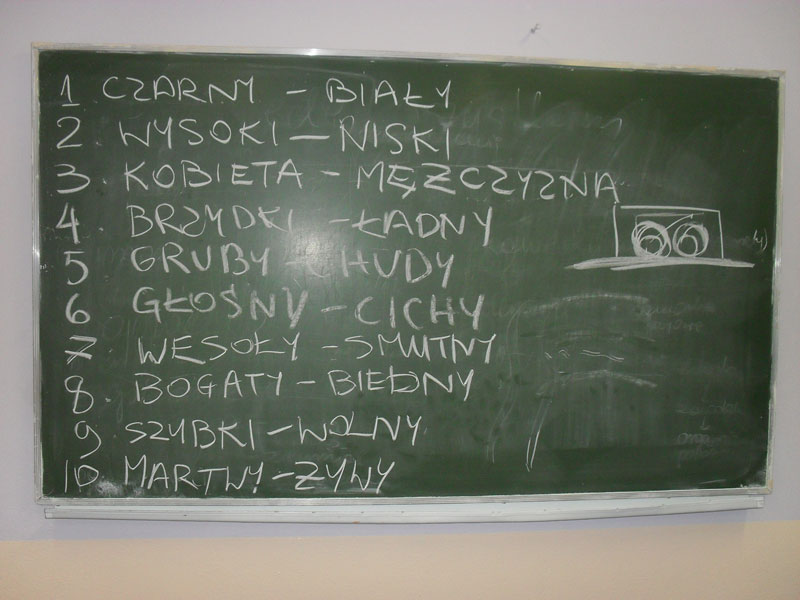 1 CZARNY - BIAŁY
2 WYSOKI - NISKI
3 KOBIETA - MĘŻCZYZNA
4 BRZYDKI - ŁADNY
5 GRUBY - CHUDY
6 GŁOŚNY - CICHY
7 WESOŁY - SMUTNY
8 BOGATY - BIEDNY
9 SZYBKI - WOLNY
10 MARTWY - ŻYWY